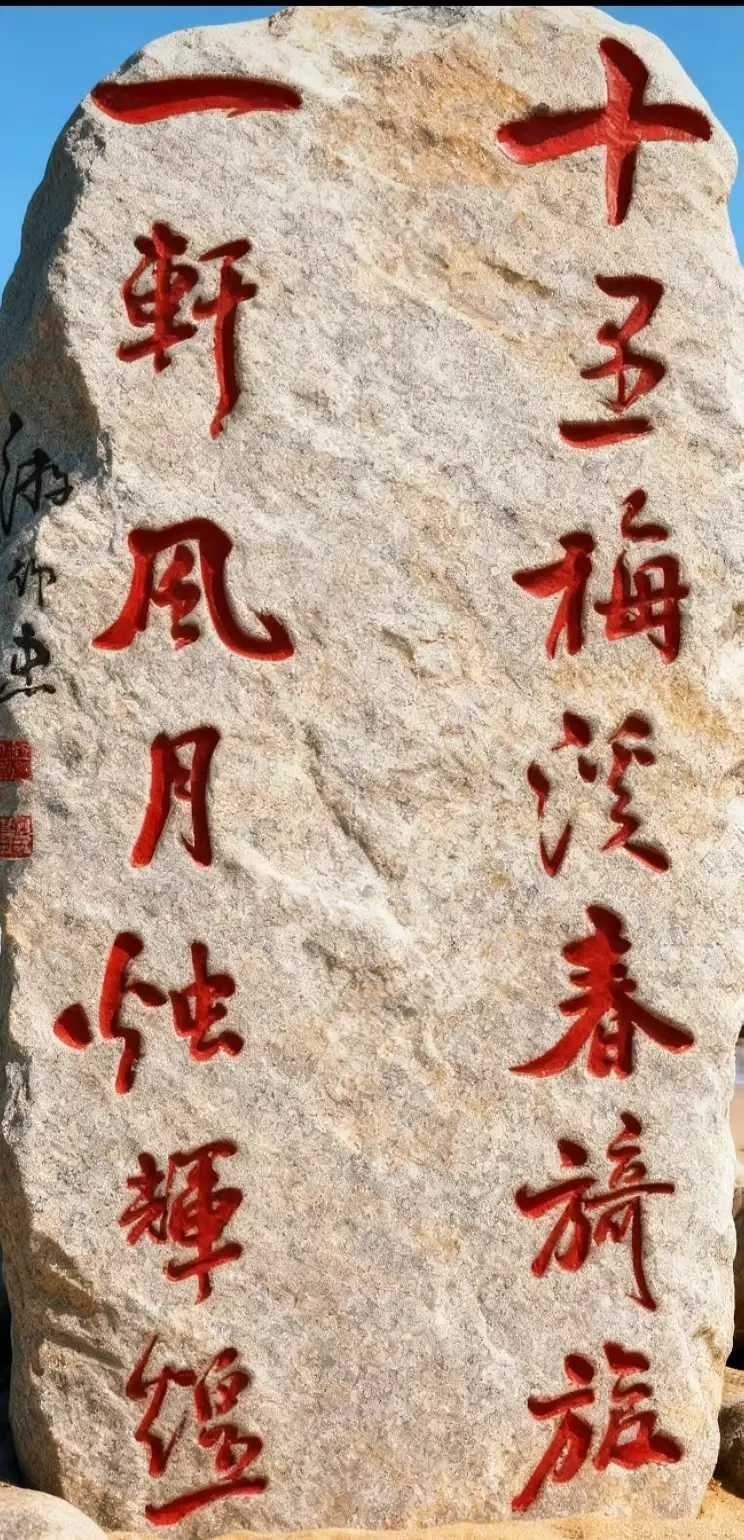 十里梅溪春旖旎
一軒風月烛輝煌